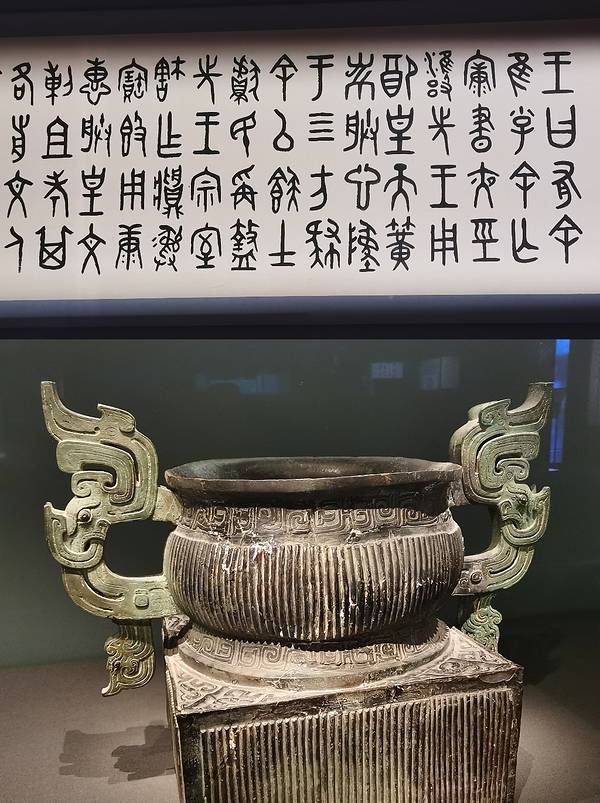 王曰有余
隹小子余亡
康晝夜巠
雝先王用
配皇天簧
黹朕心墜
于四方肆
余以餕士
獻民爯盩
先王宗室
㝬乍彝
寶簋用康
惠朕皇文
剌且考其
各前文人